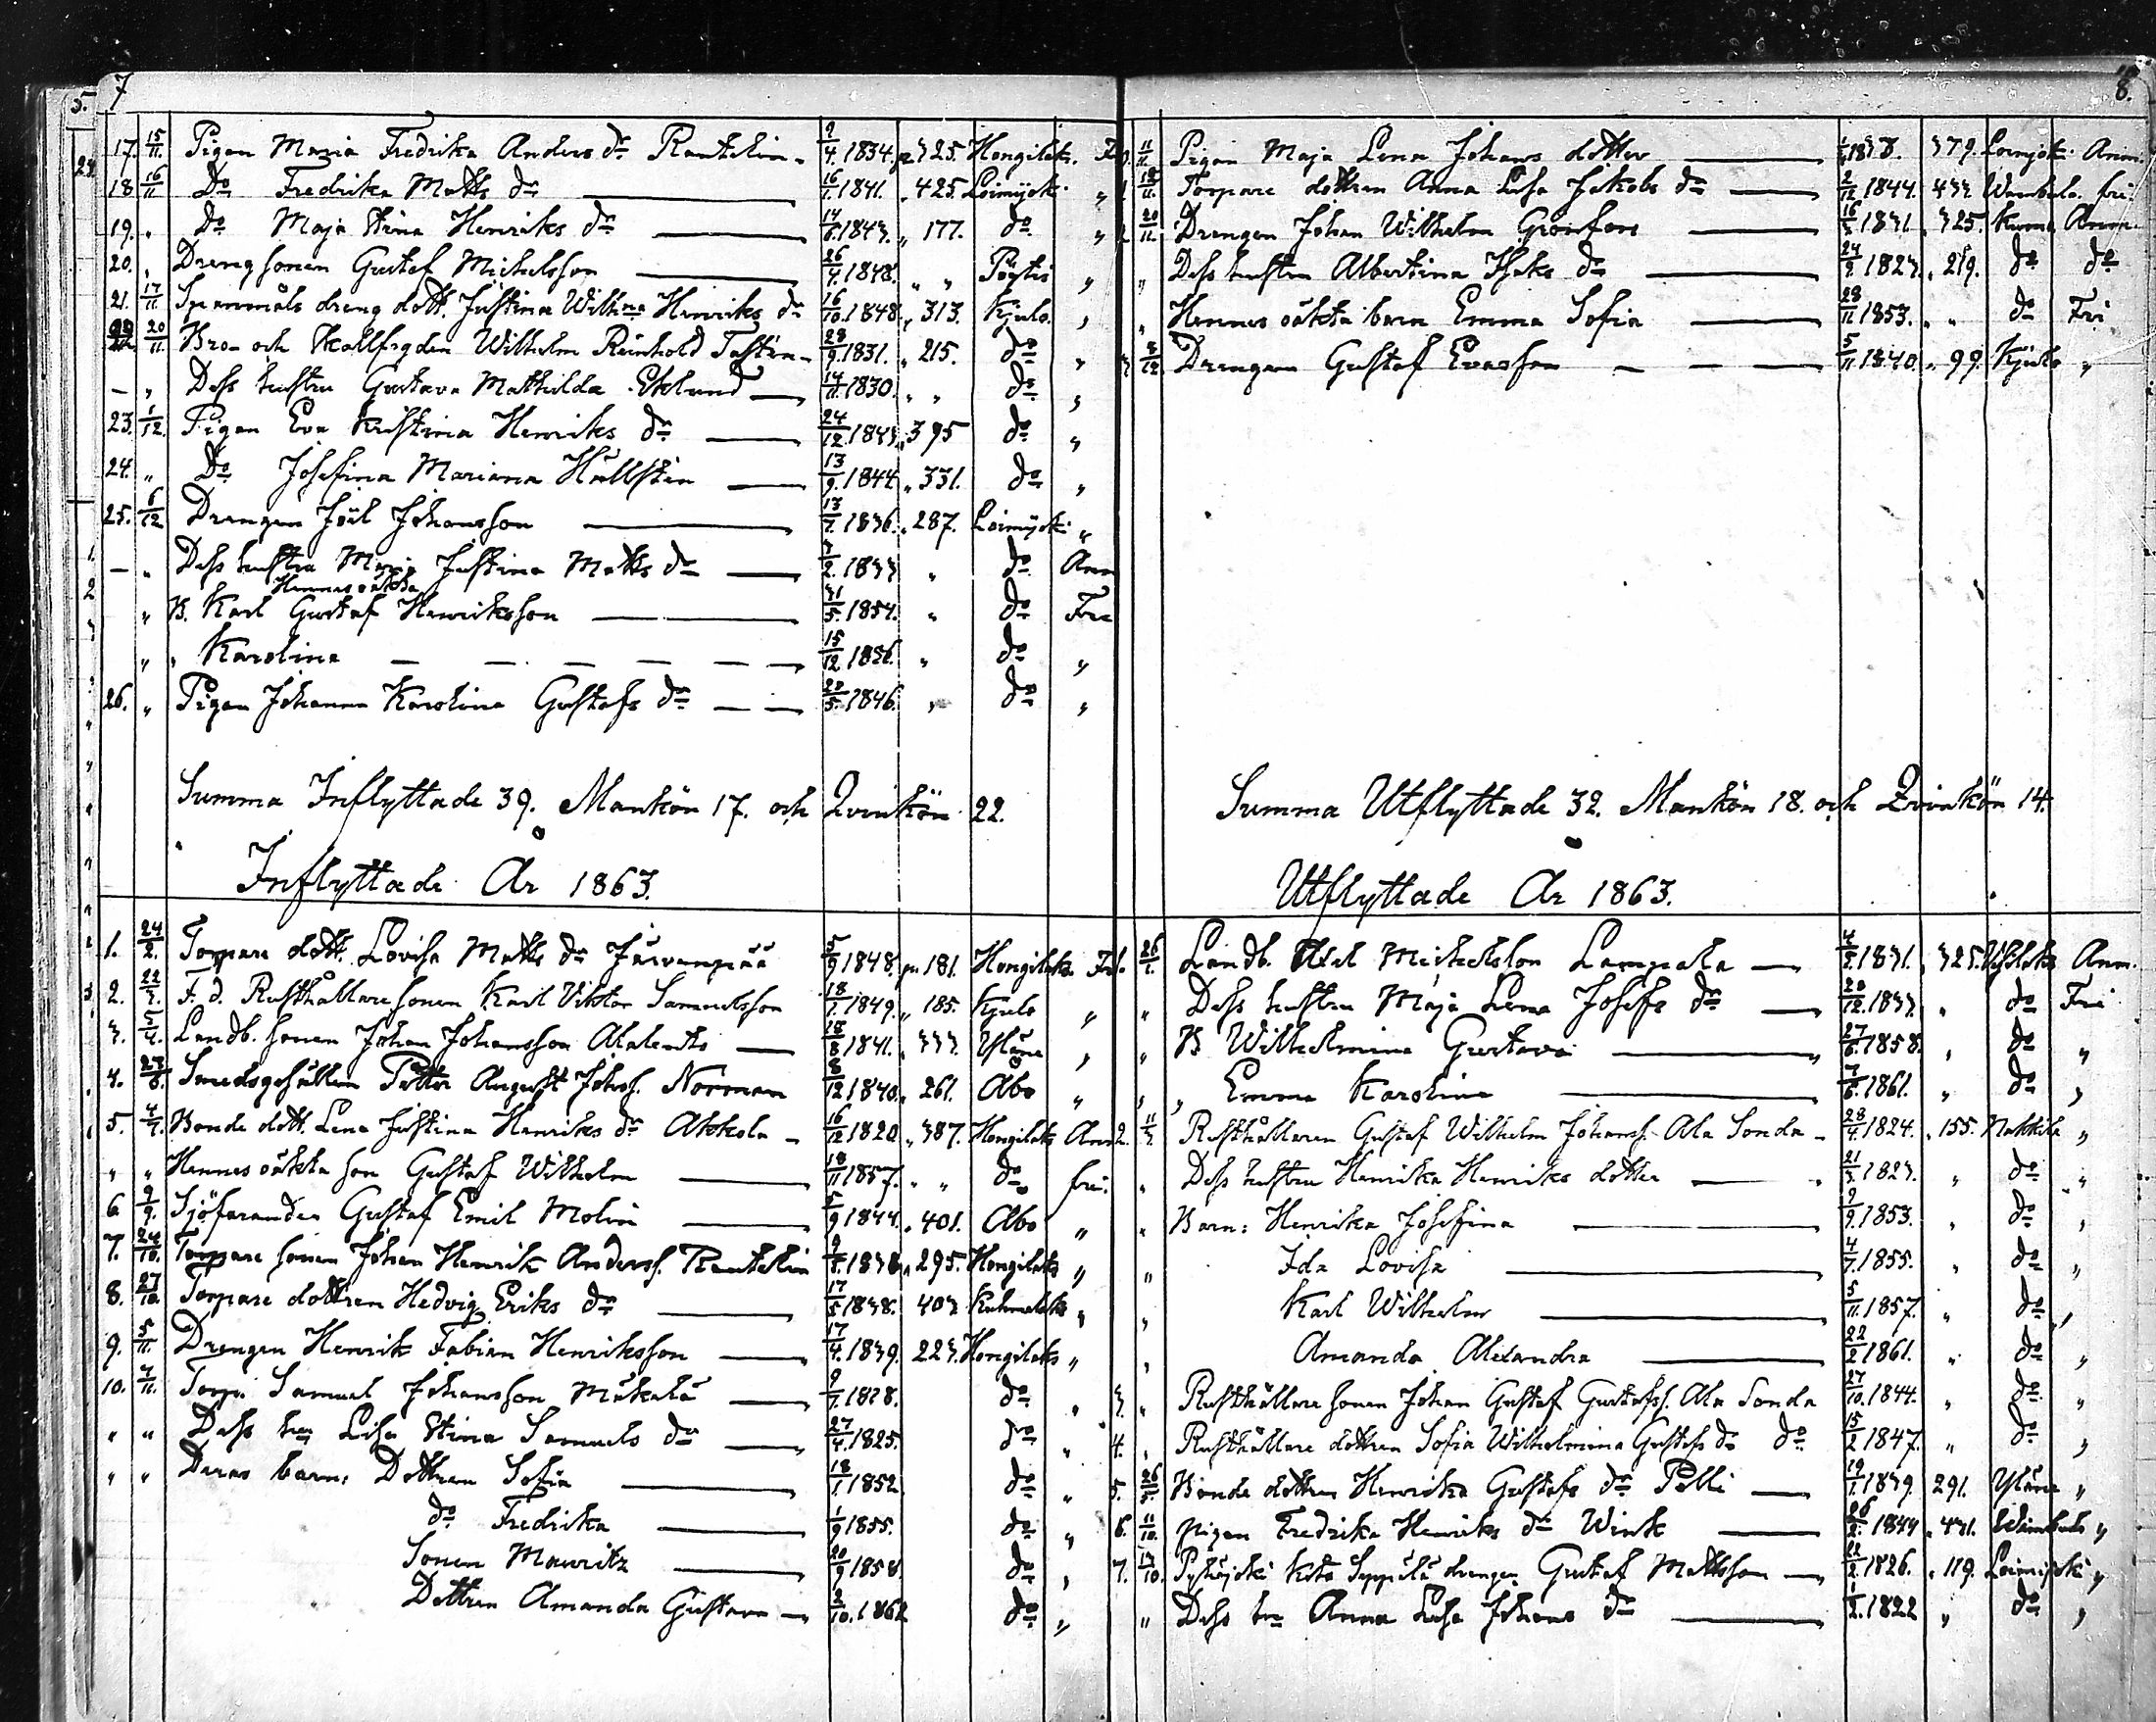 7
17. 15/11. Pigan Maria Fredrika Anders dr Rantelin - 9/4. 1834. p 325. Hongilaks. Fri
18 16/11 Do Fredrika Matts dr 16/1. 1841. „ 425. Loimijoki „
19. „ Do Maja Stina Henriks dr 14/6. 1843. „ 177. do „
20. „ Drengsonen Gustaf Michelsson 26/4. 1848. „ „ Pöytis „
21. 17/11 Spanmåls dreng dott. Justina Wilhna Henriks dr 16/10. 1848. „ 313. Kjulo. „
22 20/11. Bro- och Kallfogden Wilhelm Reinhold Tastin - 28/9. 1831. „ 215. do „
— „ Dess hustru Gustava Mathilda Eklund 14/11. 1830. „ „ do „
23. 1/12. Pigan Eva Kristina Henriks dr 24/12. 1843. „ 395 do „
24. „ Do Josefina Mariana Hällstin 13/9. 1844. „ 331. do „
25. 6/12 Drengen Joël Johansson 13/7. 1836. „ 287. Loimijoki „
— „ Dess hustru Maria Justina Matts dr 2. 1833 „ do Anm
Hennes oäkta
„ B. Karl Gustaf Henriksson 31/5. 1854. „ do Fri
„ „ Karolina 15/12. 1856. „ do „
26. „ Pigan Johanna Karolina Gustafs dr 22/5. 1846. „ do „
Summa Inflyttade 39. Mankön 17. och Qvinkön 22.
Inflyttade År 1863.
1. 24/2. Torpare dott. Lovisa Matts dr Järvenpää 5/9 1848. p. 181. Hongilaks. Fri.
2. 22/3. F. d. Rusthållare sonen Karl Viktor Samuelsson 18/7. 1849. „ 185. Kjulo „
3. 5/4. Landb. sonen Johan Johansson Alalents 18/8 1841. „ 333. Yläne „
4. 23/6. Smedsgesällen Petter August Johs. Norrman 8/12 1840. „ 261. Åbo „
5. 4/7. Bonde dott. Lena Justina Henriks dr Akkola - 16/12 1820. „ 387. Hongilaks Anm
„ „ Hennes oäkta son Gustaf Wilhelm 18/11 1857. „ „ do fri.
6 9/9. Sjöfaranden Gustaf Emil Molin 5/9 1844. „ 401. Åbo „
7. 24/10. Torpare sonen Johan Henrik Anderss. Rantelin 9/5. 1838. „ 295. Hongilaks „
8. 27/10. Torpare dottren Hedvig Eriks dr 17/5 1838. 403 Kuhmalaks „
9. 5/11. Drengen Henrik Fabian Henriksson 17/4. 1839. 223. Hongilaks „
10. 7/11. Torp. Samuel Johansson Mäkelä 9/7. 1828. do „
„ „ Dess hru Lisa Stina Samuels dr 27/4. 1825. do „
„ „ Deras barn: Dottren Sofia 18/1. 1852 do „
do Fredrika 1/9 1855. do „
Sonen Mauritz 20/9 1858. do „
Dottren Amanda Gustava 2/10. 1862 do „
8.
11/11 Pigan Maja Lena Johans dotter 379. Loimijoki. Anm.
18/11. Torpare dottren Anna Lisa Jakobs dr 2/12. 1844. 433 Wambula. fri.
20/11. Drengen Johan Wilhelm Grönfors 1831. 325. Kumo Anm.
„ Dess hustru Albertina Isaks dr 24/9. 1823. „ 219. do do
„ Hennes oäkta barn Emma Sofia 28/11 1853. „ „ do Fri
8/12 Drengen Gustaf Evasson 5/11 1840. „ 99. Kjulo „
Summa Utflyttade 32. Mankön 18. och Qvinkön 14.
Utflyttade År 1863.
26/1. Landb. Axel Michelsson Lampala 4/5. 1831. „ 325. Anm.
„ Dess hustru Maja Lena Josefs dr 20/12. 1833. „ do Fri
„ B Wilhelmina Gustava 27/6. 1858. „ do „
„ „ Emma Karolina 7/6. 1861. „ do „
2. 11/3. Rusthållaren Gustaf Wilhelm Johanss. Ala Sonda - 28/4. 1824. „ 155. Nakkila „
„ Dess hustru Henrika Henriks dotter 21/3. 1823. „ do „
„ Barn: Henrika Josefina 9/9. 1853. „ do „
„ Ida Lovisa 4/7. 1855. „ do „
„ Karl Wilhelm 5/11. 1857. „ do „
„ Amanda Alexandra 22/2 1861. „ do „
3. „ Rusthållare sonen Johan Gustaf Gustafss. Ala Sonda 27/10. 1844. „ do „
4. „ Rusthållare dottren Sofia Wilhelmina Gustafs dr do 15/2 1847. „ do „
5. 26/5. Bonde dottren Henrika Gustafs dr Pelli 19/7. 1839. 291. Yläne „
6. 11/10. Pigan Fredrika Henriks dr Wink 26/2. 1844 „ 431. Wambula „
7. 17/10. Pyhäjoki kets Seppälä drengen Gustaf Mattsson 22/2. 1826. „ 119. Loimijoki „
„ Dess hru Anna Lisa Johans dr 1/2. 1822 „ do „